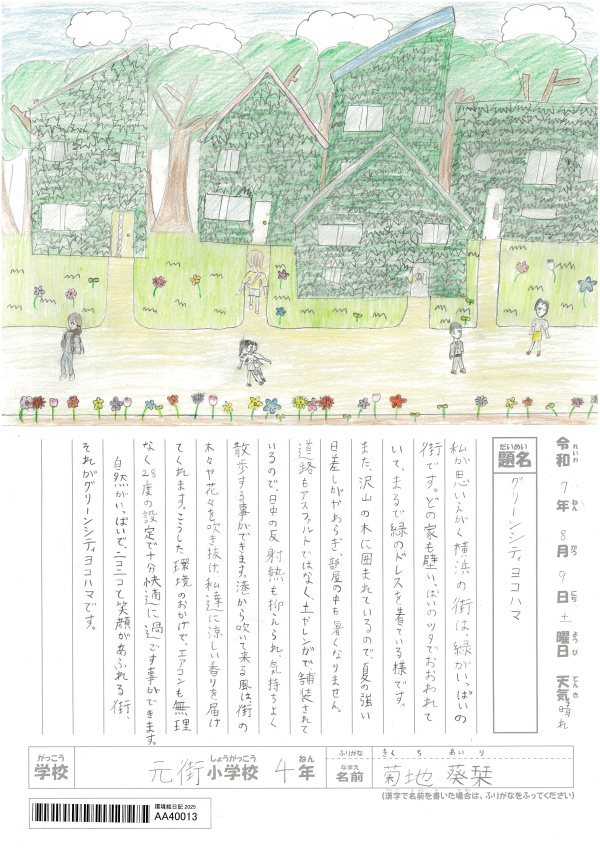 令和7年8月9日土曜日 天気晴れ
れいわ ねん がつ にち ようび てんき
だいめい
題名
グリーンシティヨコハマ
私が思いえがく横浜の街は、緑がいっぱいの
街です。どの家も壁いっぱいのツタでおおわれて
いて、まるで緑のドレスを着ている様です。
また、沢山の木に囲まれているので、夏の強い
日差しがやわらぎ、部屋の中も暑くなりません。
道路もアスファルトではなく、土やレンガで舗装されて
いるので、日中の反射熱も抑えられ、気持ちよく
散歩する事ができます。港から吹いて来る風は、街の
木々や花々を吹き抜け、私達に涼しい香りを届け
てくれます。こうした環境のおかげで、エアコンも無理
なく28度の設定で十分快適に過ごす事ができます。
自然がいっぱいで、ニコニコと笑顔があふれる街、
それがグリーンシティヨコハマです。
がっこう しょうがっこう ねん
学校 元街小学校 4年
ふりがな きくち あいり
なまえ
名前 菊地 葵栞
(漢字で名前を書いた場合は、ふりがなをふってください)
環境絵日記 2025
AA40013